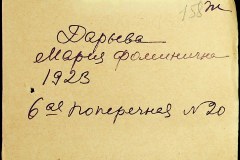 158ж
Дарьева
Мария Фоминична
1923
6ая Поперечная №20